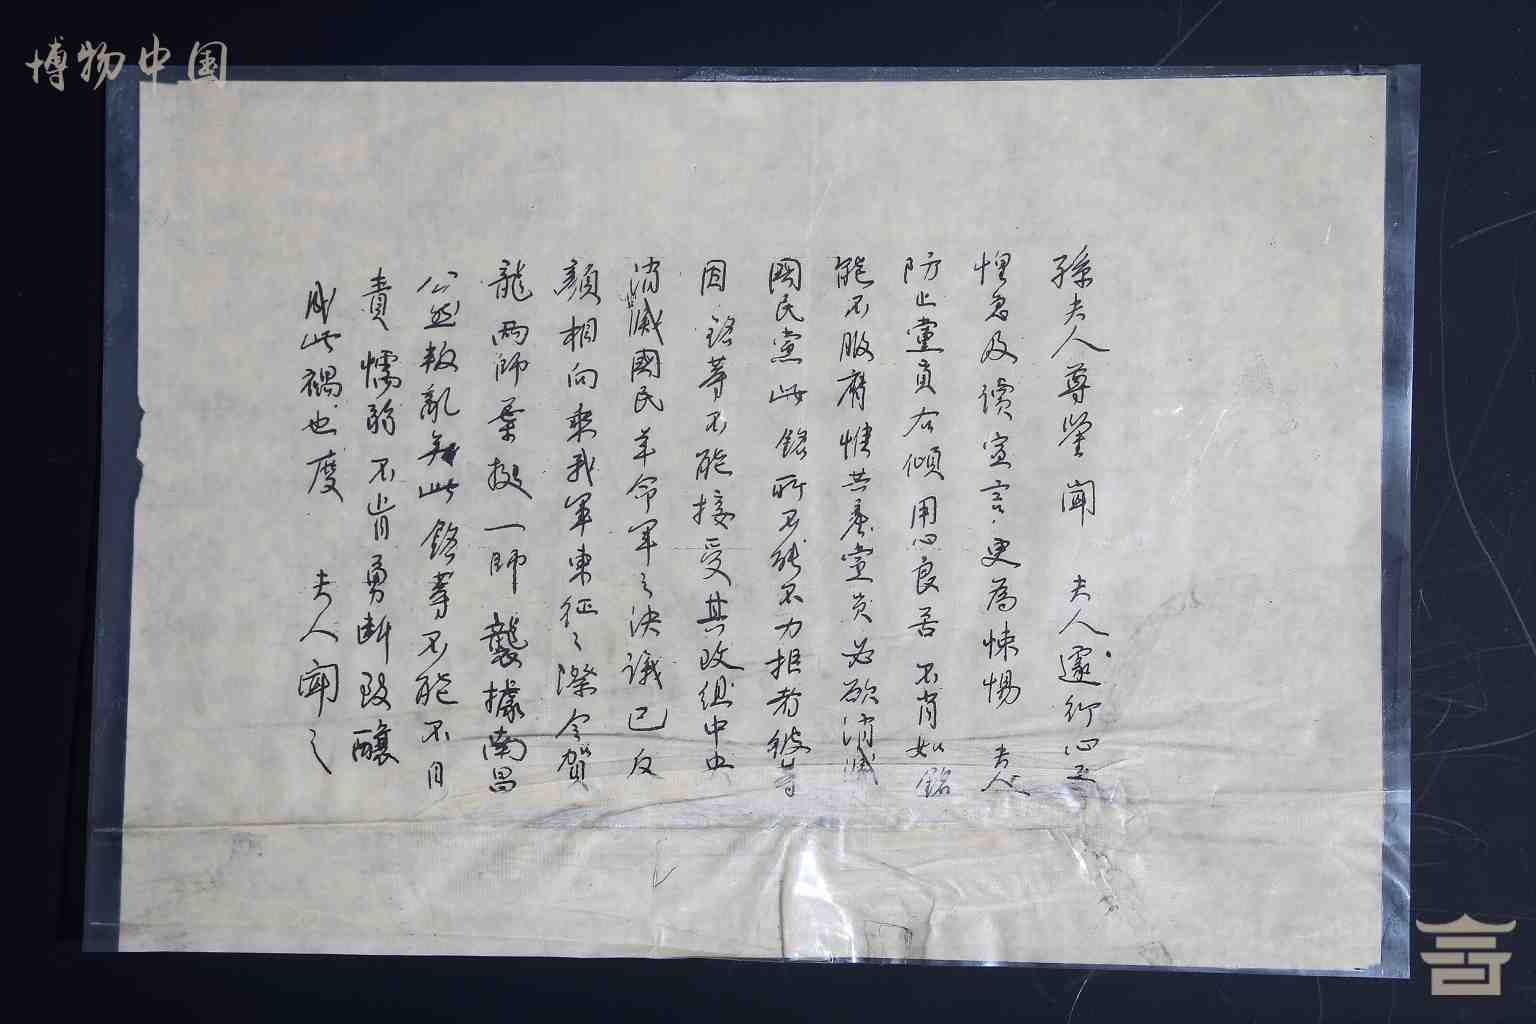 博物中国
孫夫人尊鑒 聞 夫人遽行 心至
惶急 及續宣言 更為悚惕 夫人
防止黨員右傾 用心良苦 不肖如銘
能不服膺 惟共產黨員必欲消滅
國民黨 此銘所不能不力拒者 彼等
因銘等不能接受其改組中央
消滅國民革命軍之決議 已反
顏相向 乘我軍東征之際 令賀
龍兩師 葉挺一師 襲據南昌
公然叛亂 為此銘等不能不自
責懦弱 不肯勇斷 致釀
成此禍也 度 夫人聞之